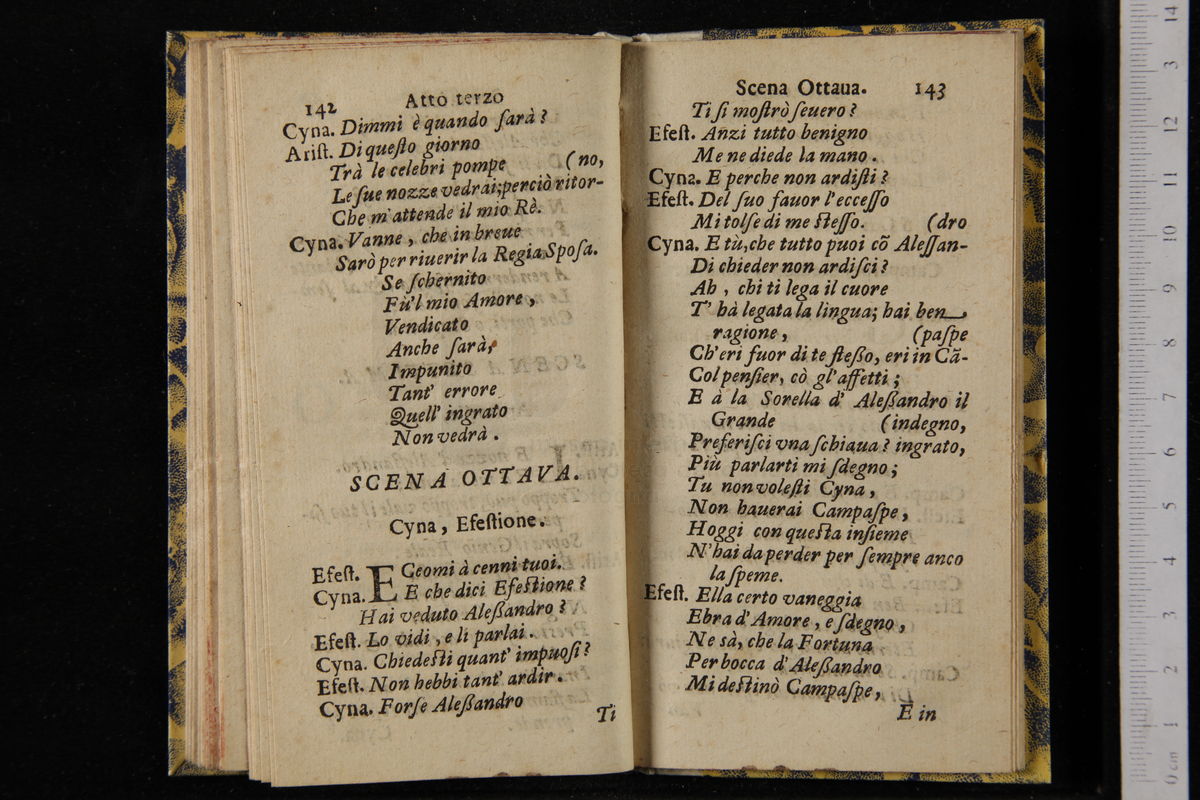 142 Atto terzo
Cyna. Dimmi è quando ſarà?
Ariſt. Di queſto giorno
Trà le celebri pompe (no,
Le ſue nozze vedrai; perciò ritor-
Che m'attende il mio Rè.
Cyna. Vanne, che in breue
Sarò per riuerir la Regia Spoſa.
Se ſchernito
Fù'l mio Amore,
Vendicato
Anche ſarà,
Impunito
Tant' errore
Quell' ingrato
Non vedrà.
SCENA OTTAVA.
Cyna, Efeſtione.
Efeſt. ECcomi à cenni tuoi.
Cyna. E che dici Efeſtione?
Hai veduto Aleßandro?
Efeſt. Lo vidi, e li parlai.
Cyna. Chiedeſti quant' impuoſi?
Efeſt. Non hebbi tant' ardir.
Cyna. Forſe Aleßandro
Ti
Scena Ottaua. 143
Ti ſi moſtrò ſeuero?
Efeſt. Anzi tutto benigno
Me ne diede la mano.
Cyna. E perche non ardiſti?
Efeſt. Del ſuo fauor l'ecceſſo
Mi tolſe di me ſteſſo. (dro
Cyna. E tù, che tutto puoi cõ Aleſſan-
Di chieder non ardiſci?
Ah, chi ti lega il cuore
T' hà legata la lingua; hai ben
ragione, (paſpe
Ch'eri fuor di te ſteßo, eri in Cã-
Col penſier, cò gl'affetti;
E à la Sorella d' Aleßandro il
Grande (indegno,
Preferiſci vna ſchiaua? ingrato,
Più parlarti mi ſdegno;
Tu non voleſti Cyna,
Non hauerai Campaſpe,
Hoggi con queſta inſieme
N'hai da perder per ſempre anco
la ſpeme.
Efeſt. Ella certo vaneggia
Ebra d'Amore, e ſdegno,
Ne sà, che la Fortuna
Per bocca d'Aleßandro
Mi deſtinò Campaſpe,
E in